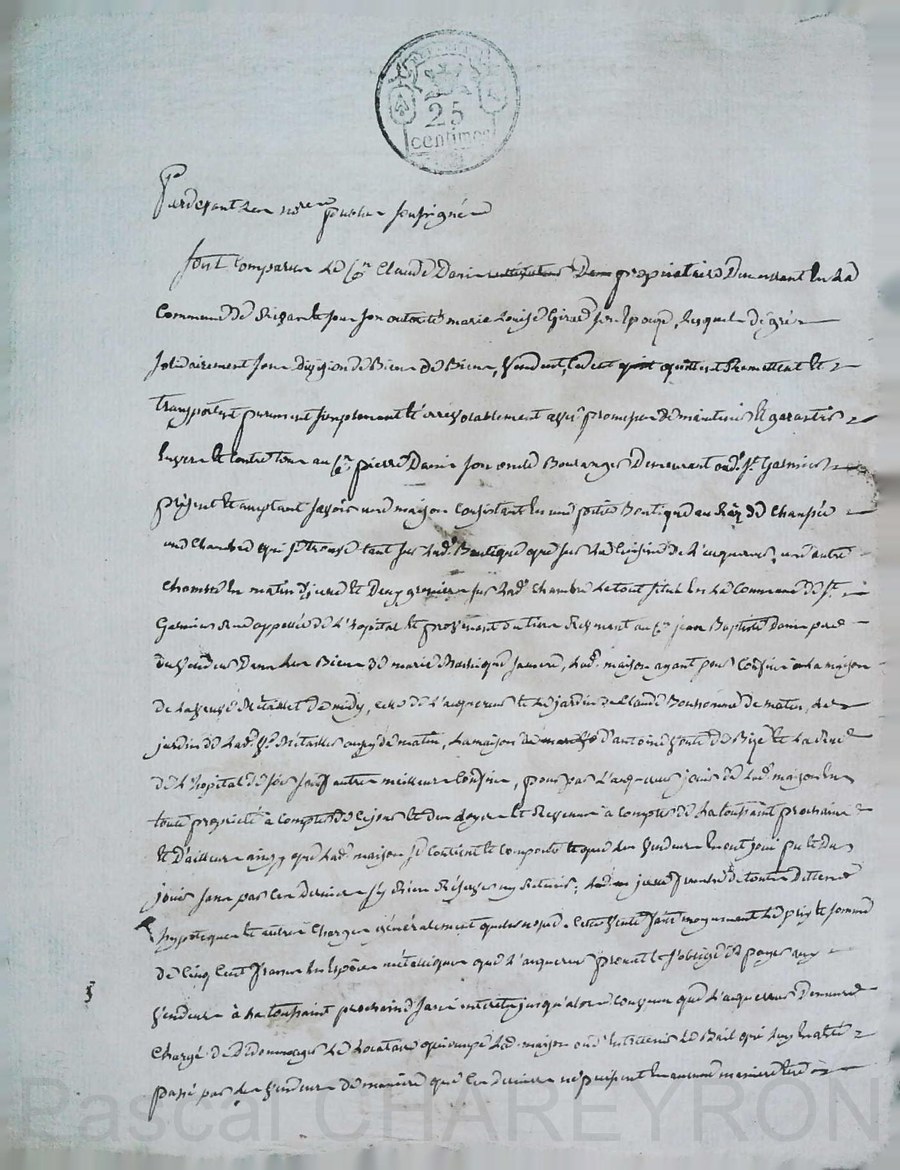 25
centimes
Pardevant les no.res publics soussignés
sont comparus le C.en Claude Danis propriétaire demeurant en la
Commune de et sous son autorité marie Louise Girard son épouse, lesquels de gré
solidairement sans division de Biens de Biens, vendent, cèdent quittent Remettent et
transportent purement simplement et irrévocablement avec promesse de maintenir et garantir
envers et contre tous au C.en pierre Danis son oncle Boulanger Demeurant aud. S.t Galmier
présent et acceptant savoir une maison Consistant en une petite Boutique au Rez de Chaussée
une Chambre qui se trouve tant sur lad.e Boutique que sur la Cuisine de l'acquéreur, une autre
chambre en et deux greniers sur lad.e chambre le tout situé en la Commune de S.t
Galmier Rue appellée de l'hopital et provenant au C.en jean Baptiste Danis père
du vendeur Dans les Biens de marie lad.e maison ayant pour Confins la maison
de la veuve de midy, celle de l'acquéreur et le jardin de Claude Bonhomme de matin, le
jardin de lad.e V.e aussy de matin, la maison d'antoine de Bize et la Rue
de l'hopital de soir sauf autres meilleurs Confins, pour par l'acquéreur jouir de lad.e maison en
toute propriété à Compter de ce jour et des loyers et Revenus à compter de la toussaint prochaine
et D'ailleurs ainsy que lad.e maison se Contient et Comporte et que les vendeurs en ont joui pu et du
jouir sans par ces derniers s'y Rien Réserver ny Retenir, de toutes Dettes
hypoteques et autres Charges généralement quelconques. Cette vente faite moyennant le prix et somme
de Cinq Cent francs en Espèces métalliques que l'acquéreur promet et s'oblige de payer aux
vendeurs à la toussaint prochaine sans intérêts jusqu'alors Convenu que l'acquéreur Demeure
Chargé de Dédommager le Locataire qui occupe lad.e maison ou d'Entretenir le Bail qui luy en a été
passé par les vendeurs de manière que Ces derniers ne puissent en aucune manière être
Pascal CHAREYRON